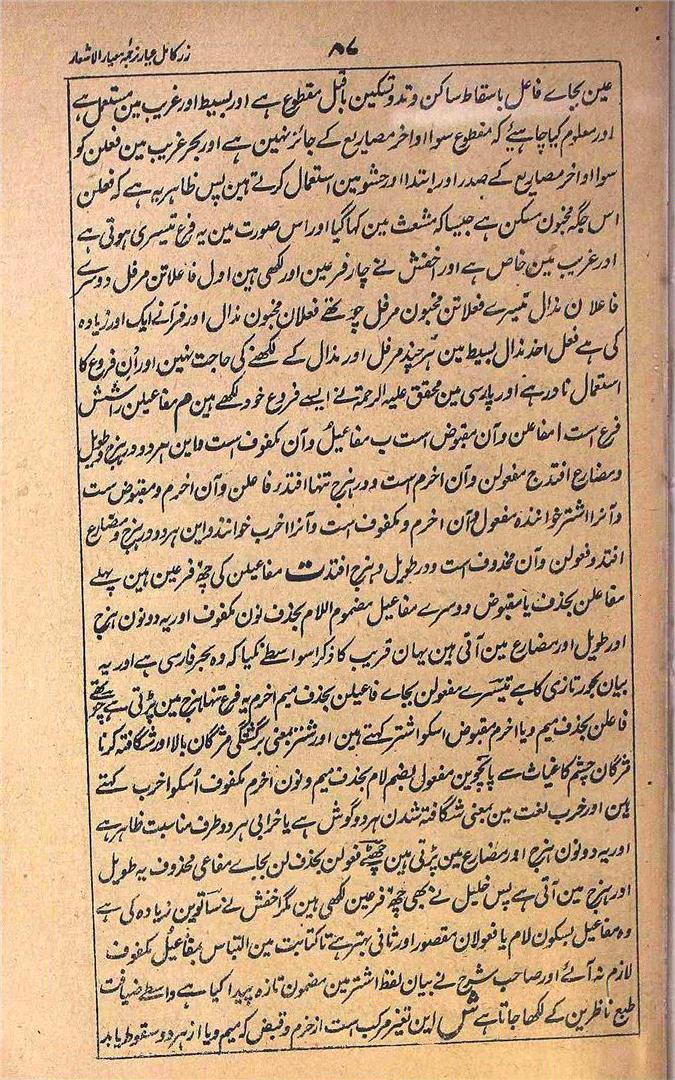 ۸۷
زر کامل عیار ترجمہ معیار الاشعار
عین بجاے فاعل باسقاط ساکن وتد و تسکین ماقبل مقطوع ہے اور بسیط اور غریب مین مستعمل ہے
اور معلوم کیا چاہیئے کہ مقطوع سوا اواخر مصاریع کے جائز نہین ہے اور بحر غریب مین فعلن کو
سوا اواخر مصاریع کے صدر اور ابتدا اور حشو مین استعمال کرتے ہین پس ظاہر یہ ہے کہ فعلن
اس جگہ مخبون مسکن ہے جیسا کہ مشعث مین کہا گیا اور اس صورت مین یہ فرع تیسری ہوتی ہے
اور غریب مین خاص ہے اور اخفش نے چار فرعین اور لکھی ہین اول فاعلاتن مرفل دوسرے
فاعلان مذال تیسرے فعلاتن مخبون مرفل چوتھے فعلان مخبون مذال اور فرا نے ایک اور زیادہ
کی ہے فعل احذ مذال بسیط مین ہر چند مرفل اور مذال کے لکھنے کی حاجت نہین اور ان فروع کا
استعمال نادر ہے اور پارسی مین محقق علیہ الرحمۃ نے ایسے فروع خود لکھے ہین م مفاعیلن را شش
فرع است ا مفاعلن وآن مقبوض است ب مفاعیلُ وآن مکفوف است واین ہر دو در ہزج و طویل
و مضارع افتد ج مفعولن وآن اخرم است و در ہزج تنہا افتد ر فاعلن وآن اخرم و مقبوض ست
وآنرا اشتر خوانند ہ مفعول وآن اخرم و مکفوف است وآنرا اخرب خوانند واین ہر دو در ہزج و مضارع
افتد و فعولن وآن محذوف است و در طویل و ہزج افتد ت مفاعیلن کی چھ فرعین ہین پہلے
مفاعلن بحذف یا مقبوض دوسرے مفاعیل مضموم اللام بحذف نون مکفوف اور یہ دونون ہزج
اور طویل اور مضارع مین آتی ہین یہان قریب کا ذکر اسواسطے نکیا کہ وہ بحر فارسی ہے اور یہ
بیان بحور تازی کا ہے تیسرے مفعولن بجاے فاعیلن بحذف میم اخرم یہ فرع تنہا ہزج مین پڑتی ہے چوتھے
فاعلن بحذف میم و یا اخرم مقبوض اسکو اشتر کہتے ہین اور شتر بمعنی برگشتگی مژگان بالا اور شگافتہ کرنا
مژگان چشم کا غیاث سے پانچوین مفعول بضم لام بحذف میم و نون اخرم مکفوف اسکو اخرب کہتے
ہین اور خرب لغت مین بمعنی شگافتہ شدن ہر دو گوش ہے یا خرابی ہر دو طرف مناسبت ظاہر ہے
اور یہ دونون ہزج اور مضارع مین پڑتی ہین چھٹے فعولن بحذف لن بجاے مفاعی محذوف یہ طویل
اور ہزج مین آتی ہے پس خلیل نے بھی چھ فرعین لکھی ہین مگر اخفش نے ساتوین زیادہ کی ہے
وہ مفاعیل بسکون لام یا فعولان مقصور اور ثانی بہتر ہے تا کتابت مین التباس بمفاعیلُ مکفوف
لازم نہ آئے اور صاحب شرح نے بیان لفظ اشتر مین مضمون تازہ پیدا کیا ہے واسطے ضیافت
طبع ناظرین کے لکھا جاتا ہے ش این تغیر مرکب ست از خرم و قبض کہ میم و یا از ہر دو سقوط یابد